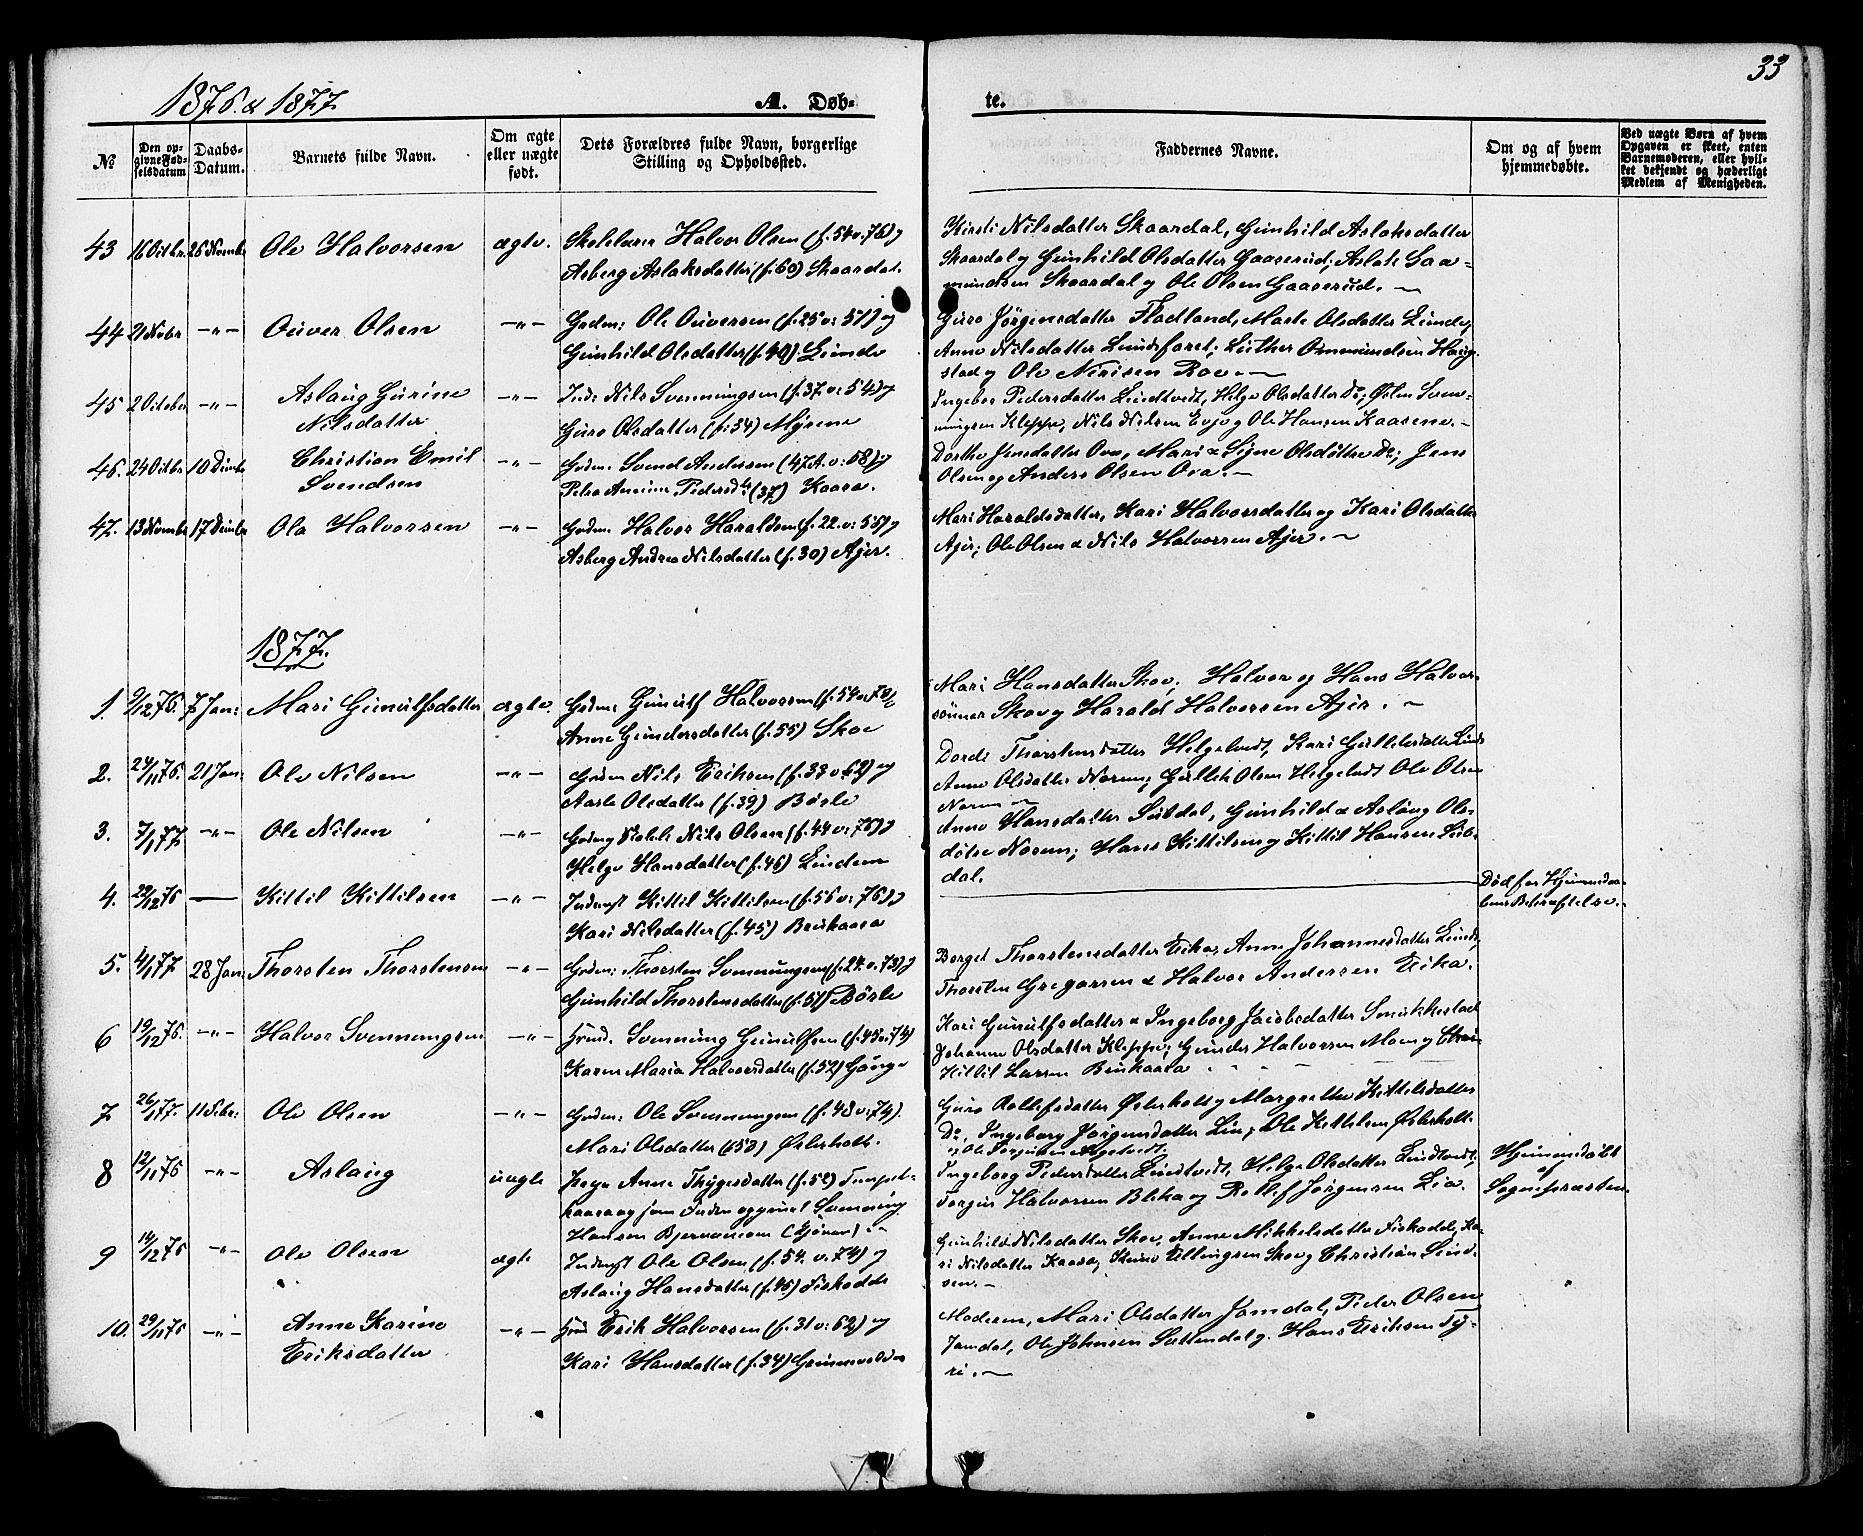 33
1876 & 1877
A. Døb-
te.
№
Den op-
givne Fød-
selsdatum
Daabs-
Datum.
Barnets fulde Navn.
Om ægte
eller uægte
født.
Dets Forældres fulde Navn, borgerlige
Stilling og Opholdssted.
Faddernes Navne.
Om og af hvem
hjemmedøbte.
Ved uægte Børn af hvem
Opgaven er skeet, enten
Barnemoderen, eller hvil-
ket bekjendt og hæderligt
Medlem af Menigheden.
43 16 Octbr. 26 Novembr Ole Halvorsen ægte. Halvor Olsen (f. 54 v. 76) og
Asberg Aslaksdatter (f. 60) Skaardal.
Kirsti Nilsdatter Skaardal, Gunhild Aslaksdatter
Skaardal og Gunhild Olsdatter Gaaserud; Aslak Gaa-
mundsen Skaardal og Ole Olsen Gaaserud.
44 2 Novbr —"— Ouver Olsen —"— Gaden: Ole Ouversen (f. 25 v. 57) og
Gunhild Olsdatter (f. 40) Lunde
Guro Jørgensdatter Fladland, Marte Olsdatter Lunde,
Anne Nilsdatter Lundsfaret; Luther Omundsen Haug-
stad og Ole Nirisen Rove
45 2 October —"— Aslaug Gurine
Nilsdatter —"— Inds Nils Svenningsen (f. 37 v. 54) og
Guro Olsdatter (f. 34) Myrene
Ingebor Pedersdatter Lindtvedt, Helge Olsdatter Do; Østen Sven-
ningsen Kleppe, Nils Nilsen Evju og Ole Hansen Kaasene.
46. 24 Octbr 10 Decbr Christian Emil
Svendsen —"— Gaden. Svend Andersen (47 A. v. 68) og
Petra Pedersd. (37) Kaasa.
Dorthe Jensdatter Ova, Mari & Signe Olsdøttre Do; Jens
Olsen og Anders Olsen Ova.
47. 13 Novembr 17 Decbr Ole Halvorsen —"— Gaden. Halvor Haraldsen (f. 22. v. 55) og
Asberg Andrea Nilsdatter (f. 30) Ajer.
Mari Haraldsdatter, Kari Halvorsdatter og Kari Olsdatter
Ajer; Ole Olsen & Nils Halvorsen Ajer.
1877.
1. 9/12 76. 7 Jan: Mari Gunulfsdatter ægte. Gaden: Gunulf Halvorsen (f. 54 v. 73)
Anne Gundersdatter (f. 55) Skoe
Mari Hansdatter Skoe; Halvor og Hans Halvor-
sønner Skoe og Harald Halvorsen Ajer.
2. 24/11 76. 21 Jan: Ole Nilsen —"— Gaden Nils Eriksen (f. 39 v. 62) og
Aaste Olsdatter (f. 39) Børte
Dordi Thorstensdatter Helgetvedt, Kari Gulleksdatter Lunde
Anne Olsdatter Norum; Gullik Olsen Helgetvedt Ole Olsen
Norum
3. 7/1 77 —"— Ole Nilsen —"— Nils Olsen (f. 44 v. 75) og
Helge Hansdatter (f. 46) Lindem
Anne Hansdatter Sutdal, Gunhild & Aslaug Ols-
døtre Norum; Hans Kittilsen og Kittil Hansen Sut-
dal.
4. 29/12 76 — Kittil Kittilsen —"— Inderst Kittil Kittilsen (f. 56 v. 76) og
Kari Nilsdatter (f. 45) Brukaasa
Død før Hjemmedaa-
bens Bekræftelse.
5. 4/1 77 28 Jan. Thorsten Thorstensen —"— Gaden: Thorsten Svenningsen (f. 24. v. 73) og
Gunhild Thorstensdatter (f. 51) Børte
Borget Thorstensdatter Eika, Anne Johannesdatter Lunde,
Thorsten Gregarsen & Halvor Andersen Eika.
6 19/12 76. —"— Halvor Svenningsen —"— Svenning Gunulfsen (f. 45 v. 74)
Karen Maria Halvorsdatter (f. 52) Gaug
Kari Gunulfsdatter & Ingeborg Jacobsdatter Smukkestad
Johanne Olsdatter Kleppe; Gunder Halvorsen Moen og
Kittil Larsen Brukaasa
7 26/1 77. 11 Febr: Ole Olsen —"— Gaden: Ole Svenningsen (f. 48 v. 74).
Mari Olsdatter (f. 52) Østerholt.
Guro Rollefsdatter Østerholt og Margrethe Kittelsdatter
Do, Ingeborg Jørgensdatter Lia, Ole Kittelsen Østerholt
og Ole
8 12/11 76 —"— Aslaug uægte Pige Anne Thygesdatter (f. 52) Tempel-
kaasa og Svenning
Hansen Bjervamoen
Ingeborg Pedersdatter Lindtvedt, Helge Olsdatter Lindtvedt,
Torgius Halvorsen Bleka og Rollef Jørgensen Lia.
Hjemmedøbt
af
Sognepræsten.
9 14/12 76 —"— Ole Olsen ægte Inderst Ole Olsen (f. 54. v. 74) og
Aslaug Hansdatter (f. 45) Fiskodde
Gunhild Nilsdatter Skoe, Anne Mikkelsdatter Fiskodde, Ka-
ri Nilsdatter Kaasa, Ellingsen Skoe og Christian Lund-
sen.
10. 29/11 76 —"— Anne Karine
Eriksdatter —"— Erik Halvorsen (f. 31 v. 62) og
Kari Hansdatter (f. 34) Grunevolden
Moderen, Mari Olsdatter Jamdal, Peder Olsen
Jamdal, Ole Johnsen Sattendal og Hans Eriksen Ty-
ri.